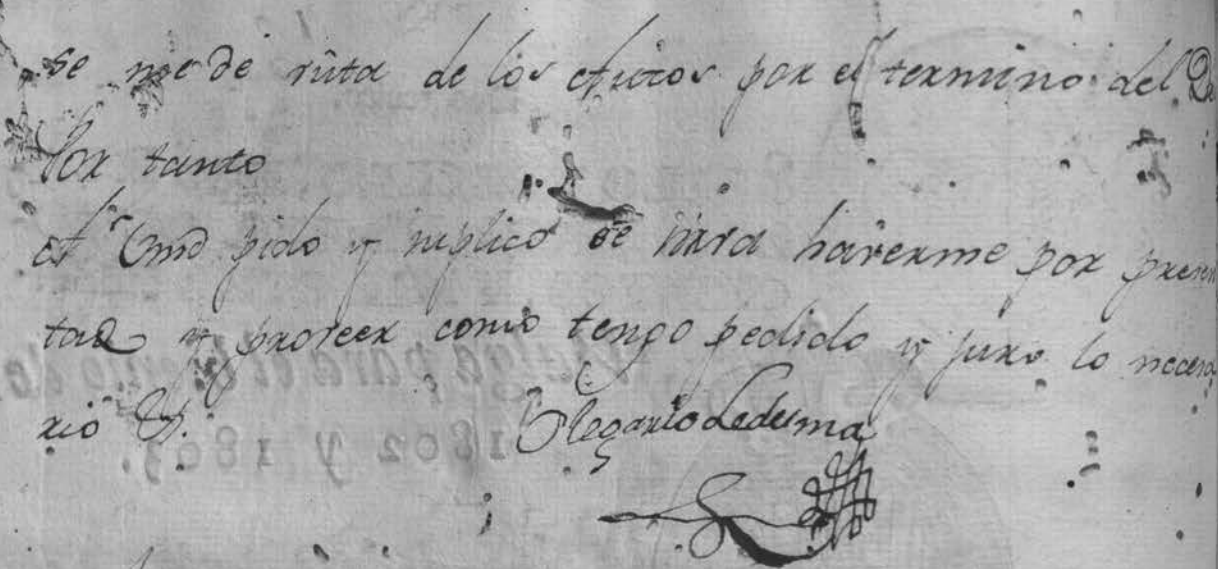 se me dé vista de los autos por el termino del D
Por tanto
A Vmd pido y suplico se sirva haverme por presen
tado y proveer como tengo pedido y juro lo necesa
rio &.
Olegario Ledesma
Valga para el
1802 y 1803.